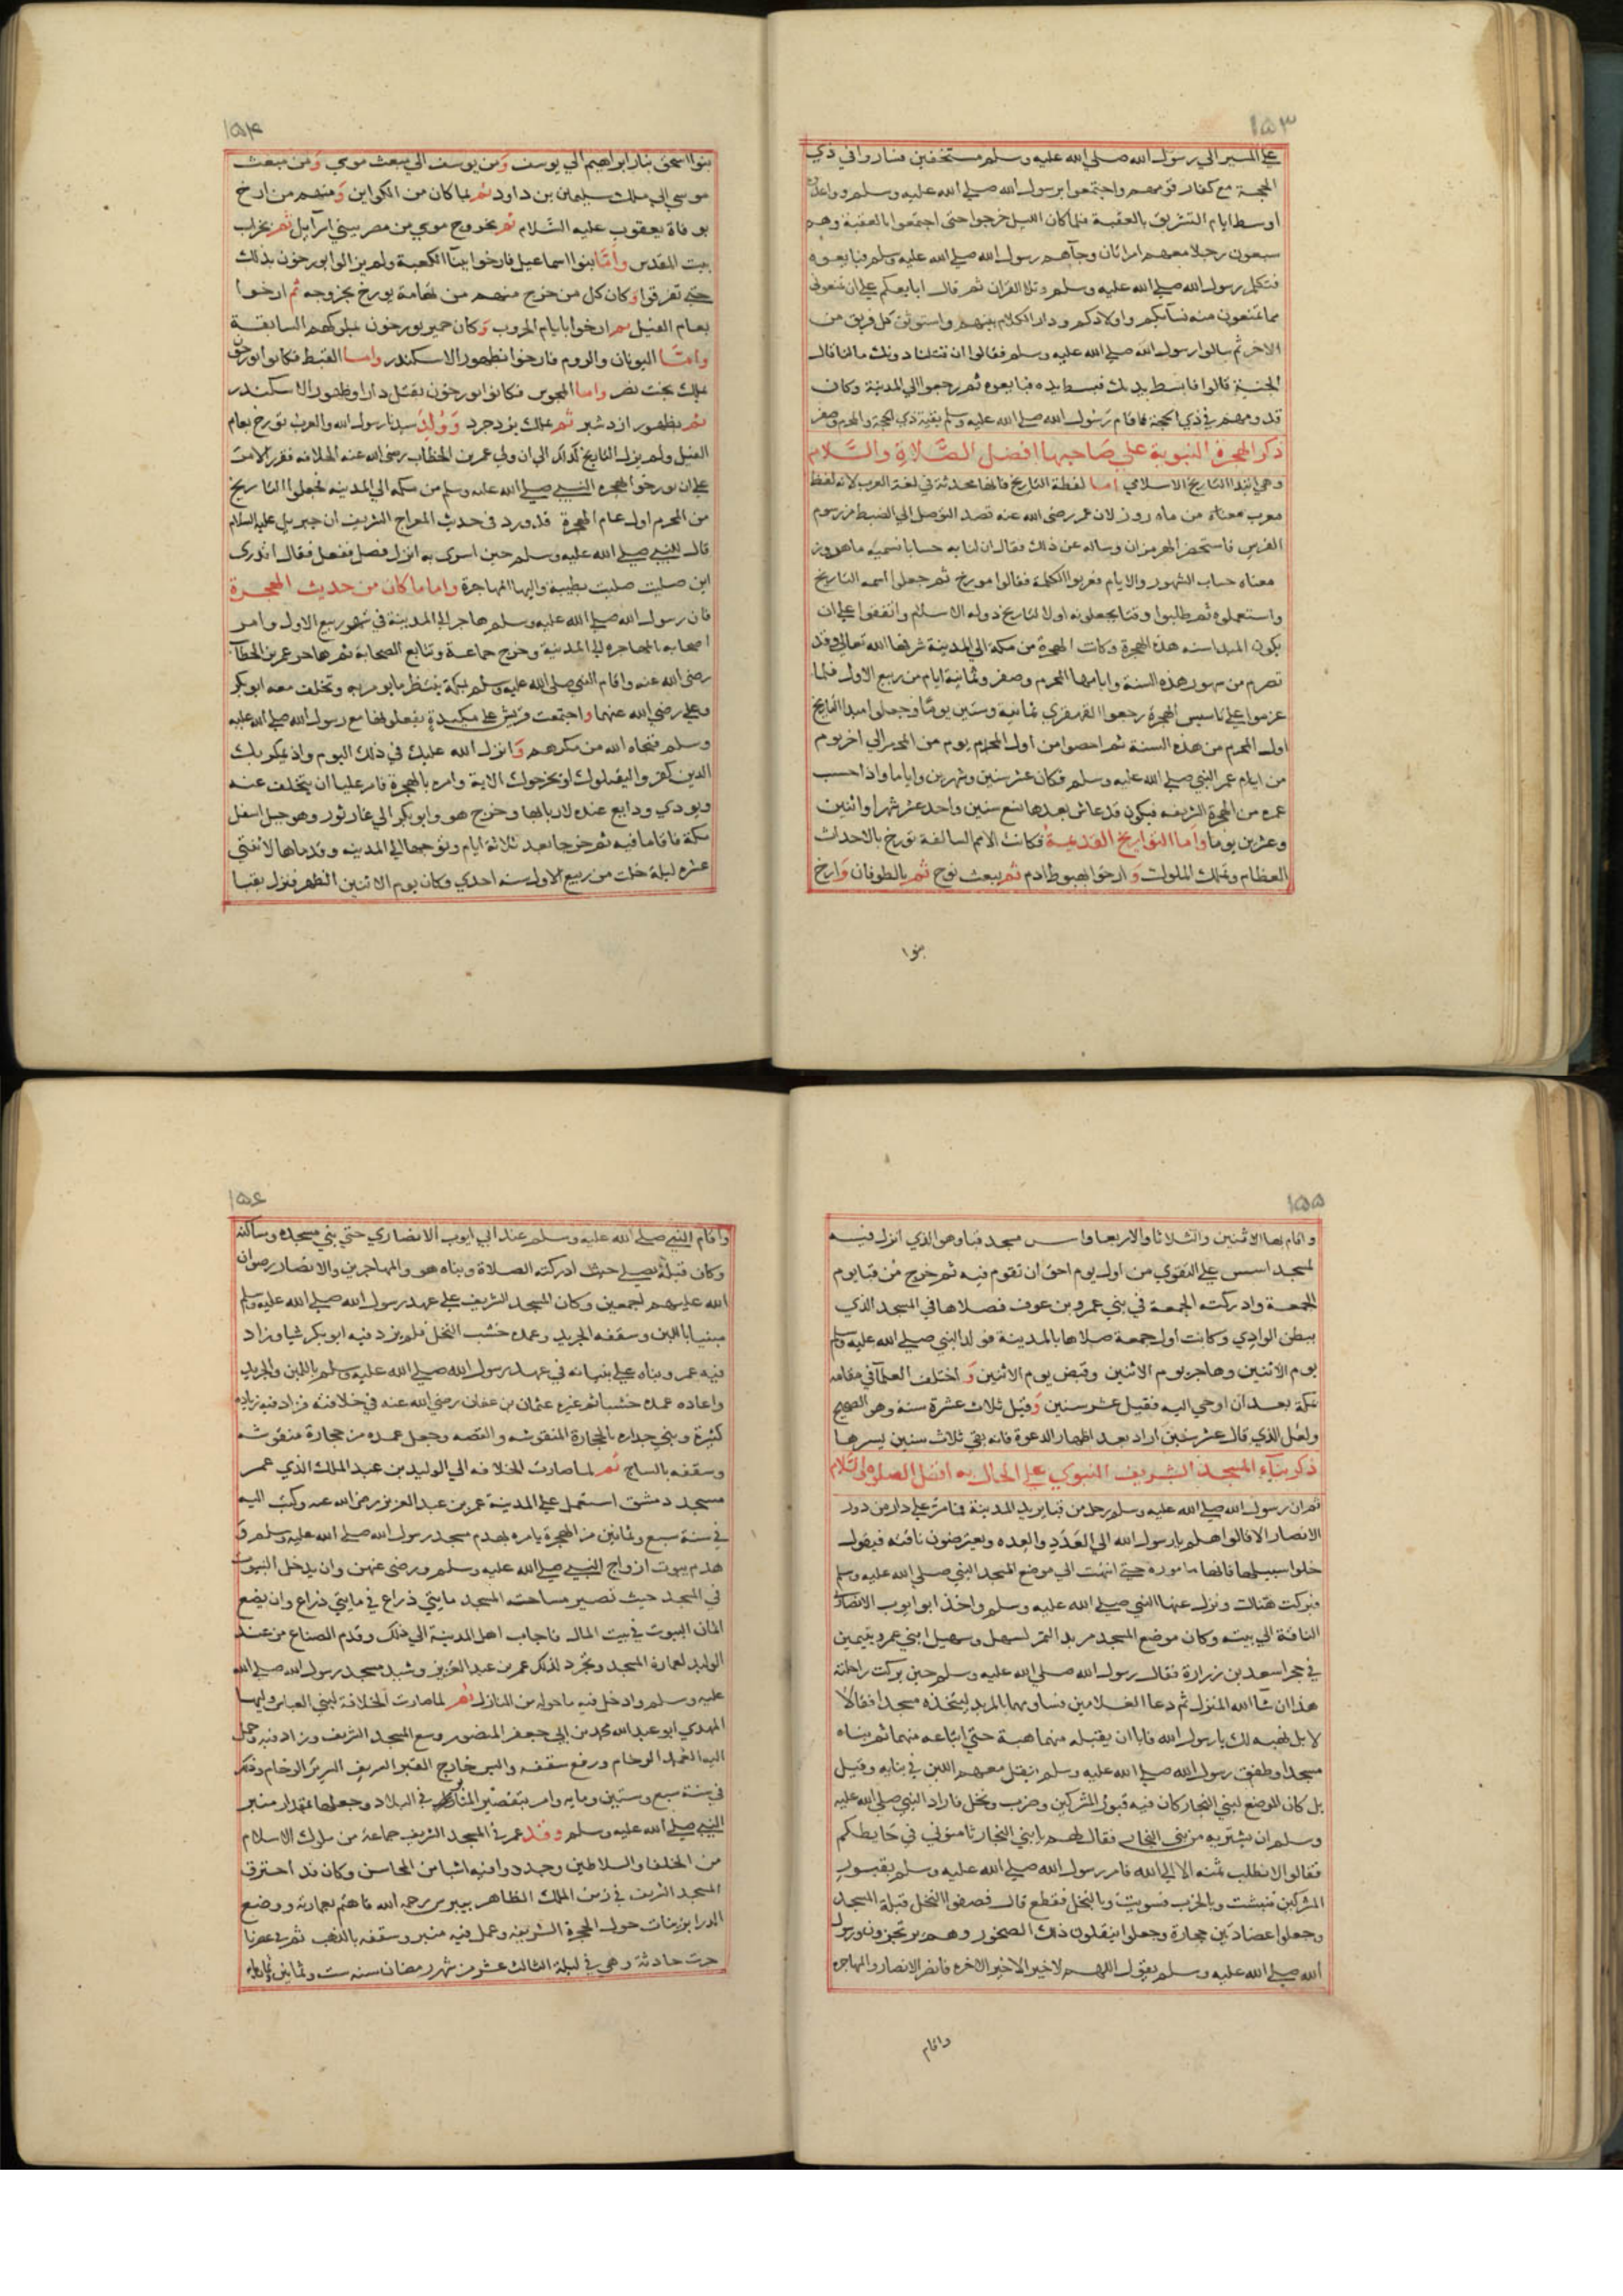 ١٥٣
علي المسير الي رسول الله صلى الله عليه وسلم مستخفين فساروا في ذي
الحجة مع كفار قومهم واجتمعوا برسول الله صلى الله عليه وسلم وواعدوه
اوسط ايام التشريق بالعقبة فلما كان الليل خرجوا حتى اجتمعوا بالعقبة وهم
سبعون رجلا معهم امراتان وجآهم رسول الله صلى الله عليه وسلم فبايعوه
فتكلم رسول الله صلى الله عليه وسلم وتلا القران ثم قال ابايعكم على ان تمنعوني
مما تمنعون منه نسآكم واولادكم ودار الكلام بينهم واستوثق كل فريق من
الاخر ثم سالوا رسول الله صلى الله عليه وسلم فقالوا ان قتلنا دونك ما لنا قال
الجنة قالوا فابسط يدك فبسط يده فبايعوه ثم رجعوا الي المدينة وكان
قدومهم في ذي الحجة فاقام رسول الله صلى الله عليه وسلم بقية ذي الحجة والمحرم وصفر
ذكر الهجرة النبوية علي صاحبها افضل الصلاة والسلام
وهي ابتدا التاريخ الاسلامي اما لفظة التاريخ فانها محدثة في لغة العرب لانه لفظ
معرب معناه من ماه روز لان عمر رضى الله عنه قصد التوصل الي الضبط من رسوم
الفرس فاستحضر الهرمزان وساله عن ذلك فقال ان لنا به حسابا نسميه ماه روز
معناه حساب الشهور والايام فعربوا الكلمة فقالوا مورخ ثم جعلوا اسمه التاريخ
واستعملوه ثم طلبوا وقتا يجعلونه اولا لتاريخ دولة الاسلام واتفقوا على ان
يكون المبدا سنة هذه الهجرة وكانت الهجرة من مكة الي المدينة شرفها الله تعالى وقد
تصرم من شهور هذه السنة وايامها المحرم وصفر وثمانية ايام من ربيع الاول فلما
عزموا علي تاسيس الهجرة رجعوا القهقري ثمانية وستين يوما وجعلوا مبدا التاريخ
اول المحرم من هذه السنة ثم احصوا من اول المحرم يوم من المحرم الي اخر يوم
من ايام عمر النبي صلى الله عليه وسلم فكان عشر سنين وشهرين واياما واذا حسب
عمره من الهجرة الشريفه فيكون قد عاش بعدها تسع سنين واحد عشر شهرا واثنين
وعشرين يوما واما التواريخ القديمة فكانت الامم السالفة تورخ بالاحداث
العظام وتملك الملوك وارخوا بهبوط ادم ثم ببعث نوح ثم بالطوفان وارخ
بنوا
١٥۴
بنوا اسحق بنار ابراهيم الي يوسف ومن يوسف الي مبعث موسي ومن مبعث
موسي الي ملك سليمان بن داود ثم بما كان من الكواين ومنهم من ارخ
بوفاة يعقوب عليه السلام ثم بخروج موسي من مصر ببني اسرآيل ثم بخراب
بيت المقدس واما بنوا اسماعيل فارخوا ببنآ الكعبة ولم يزالوا يورخون بذلك
حتى تفرقوا وكان كل من خرج منهم من تهامة يورخ بخروجه ثم ارخوا
بعام الفيل ثم ارخوا بايام الحروب وكان حمير يورخون بملوكهم السابقة
واما اليونان والروم فارخوا بظهور الاسكندر واما القبط فكانوا يورخون
بملك بخت نصر واما المجوس فكانوا يورخون بقتل دارا وظهور الاسكندر
ثم بظهور ازدشير ثم بملك يزدجرد وولد سيدنا رسول الله والعرب تورخ بعام
الفيل ولم يزل التاريخ كذلك الي ان ولي عمر بن الخطاب رضى الله عنه الخلافه فقرر الامر
على ان يورخوا بهجرة النبي صلى الله عليه وسلم من مكه الي المدينه فجعلوا التاريخ
من المحرم اول عام الهجرة قد ورد في حديث المعراج الشريف ان جبريل عليه السلام
قال للنبي صلى الله عليه وسلم حين اسرى به انزل فصل ففعل فقال اتدرى
اين صليت صليت بطيبة واليها المهاجرة واما ما كان من حديث الهجرة
فان رسول الله صلى الله عليه وسلم هاجر الى المدينة في شهر ربيع الاول وامر
اصحابه بالمهاجره الى المدينة وخرج جماعة وتتابع الصحابة ثم هاجر عمر بن الخطاب
رضى الله عنه واقام النبي صلى الله عليه وسلم بمكة ينتظر ما يومر به وتخلف معه ابو بكر
وعلي رضي الله عنهما واجتمعت قريش على مكيدة يفعلونها مع رسول الله صلى الله عليه
وسلم فنجاه الله من مكرهم وانزل الله عليه في ذلك اليوم واذ يمكر بك
الذين كفروا ليقتلوك او يخرجوك الاية وامره بالهجرة فامر عليا ان يتخلف عنه
ويودي ودايع عنده لاربابها وخرج هو وابو بكر الي غار ثور وهو جبل اسفل
مكة فاقاما فيه ثم خرجا بعد ثلاثة ايام وتوجها الي المدينه وقدماها لاثنتي
عشره ليلة خلت من ربيع الاول سنه احدي وكان يوم الاثنين الظهر فنزل بقبا
١٥۵
واقام بها الاثنين والثلاثا والاربعا واسس مسجد قبا وهو الذي انزل فيه
لمسجد اسس علي التقوي من اول يوم احق ان تقوم فيه ثم خرج من قبا يوم
الجمعة وادركته الجمعة في بني عمرو بن عوف فصلاها في المسجد الذي
ببطن الوادي وكانت اول جمعة صلاها بالمدينة فولد النبي صلى الله عليه وسلم
يوم الاثنين وهاجر يوم الاثنين وقبض يوم الاثنين و اختلف العلمآ في مقامه
بمكة بعد ان اوحي اليه فقيل عشر سنين وقيل ثلاث عشرة سنة وهو الصحيح
ولعل الذي قال عشر سنين اراد بعد اظهار الدعوة فانه بقي ثلاث سنين يسرها
ذكر بنآء المسجد الشريف النبوي علي الحال به افضل الصلوة والسلام
ثم ان رسول الله صلى الله عليه وسلم رحل من قبا يريد المدينة فما مر علي دار من دور
الانصار الا قالوا هلم يا رسول الله الي العدد والعده ويعترضون ناقته فيقول
خلوا سبيلها فانها ماموره حتى انتهت الي موضع المسجد النبي صلى الله عليه وسلم
فبركت هناك ونزل عنها النبي صلى الله عليه وسلم واخذ ابو ايوب الانصاري
الناقة الي بيته وكان موضع المسجد مربد التمر لسهل وسهيل ابني عمرو يتيمين
في حجر اسعد بن زرارة فقال رسول الله صلى الله عليه وسلم حين بركت راحلته
هذا ان شآ الله المنزل ثم دعا الغلامين فساومهما بالمربد ليتخذه مسجدا فقالا
لا بل نهبه لك يا رسول الله فابا ان يقبله منهما هبة حتي ابتاعه منهما ثم بناه
مسجدا وطفق رسول الله صلى الله عليه وسلم ينقل معهم اللبن في بنايه وقيل
بل كان الموضع لبني النجار كان فيه قبور المشركين وخرب ونخل فاراد النبي صلى الله عليه
وسلم ان يشتريه من بني النجار فقال لهم يا بني النجار ثامنوني في حايطكم
فقالوا لا نطلب ثمنه الا الي الله فامر رسول الله صلى الله عليه وسلم بقبور
المشركين فنبشت وبالخرب فسويت وبالنخل فقطع قال فصفوا النخل قبلة المسجد
وجعلوا عضادتين حجارة وجعلوا ينقلون ذلك الصخور وهم يرتجزون ورسول
الله صلى الله عليه وسلم يقول اللهم لا خير الا خير الاخره فانصر الانصار والمهاجره
واقام
١٥۶
واقام النبي صلى الله عليه وسلم عند ابي ايوب الانصاري حتي بني مسجده ومساكنه
وكان قبله يصلي حيث ادركته الصلاة وبناه هو والمهاجرين والانصار رضوان
الله عليهم اجمعين وكان المسجد الشريف علي عهد رسول الله صلى الله عليه وسلم
مبنيا باللبن وسقفه الجريد وعمده خشب النخل فلم يزد فيه ابو بكر شيا وزاد
فيه عمر وبناه علي بنيانه في عهد رسول الله صلى الله عليه وسلم باللبن والجريد
واعاده عمده خشبا ثم غيره عثمان بن عفان رضي الله عنه في خلافته فزاد فيه زيادة
كثيرة وبني جداره بالحجارة المنقوشه والقصه وجعل عمده من حجارة منقوشه
وسقفه بالساج ثم لما صارت الخلافه الي الوليد بن عبد الملك الذي عمر
مسجد دمشق استعمل علي المدينة عمر بن عبد العزيز رضى الله عنه وكتب اليه
في سنة سبع وثمانين من الهجرة يامره بهدم مسجد رسول الله صلى الله عليه وسلم و
هدم بيوت ازواج النبي صلى الله عليه وسلم ورضى عنهن وان يدخل البيوت
في المسجد حيث تصير مساحته المسجد مايتي ذراع في مايتي ذراع وان يضع
اثمان البيوت في بيت المال فاجاب اهل المدينة الي ذلك وقدم الصناع من عند
الوليد لعمارة المسجد وتجرد لذلك عمر بن عبد العزيز وشيد مسجد رسول الله صلى الله
عليه وسلم وادخل فيه ما حوله من المنازل ثم لما صارت الخلافة لبني العباس وليها
المهدي ابو عبد الله محمد بن ابي جعفر المنصور وسع المسجد الشريف وزاد فيه وحمل
اليه العمد الرخام ورفع سقفه والبس خارج القبر الشريف الرخام
في سنة سبع وستين ومايه وامر بتقصير المنابر في البلاد وجعلها بمقدار منبر
النبي صلى الله عليه وسلم وقد عمر في المسجد الشريف جماعة من ملوك الاسلام
من الخلفا والسلاطين وجددوا فيه اشيا من المحاسن وكان قد احترق
المسجد الشريف في زمن الملك الظاهر بيبرس رحمه الله فاهتم بعمارته ووضع
الدرابزينات حول الحجرة الشريفه وعمل فيه منبر وسقفه بالذهب ثم في عصرنا
جرت حادثة وهي في ليلة الثالث عشر من شهر رمضان سنه ست وثمانين وثمانمايه